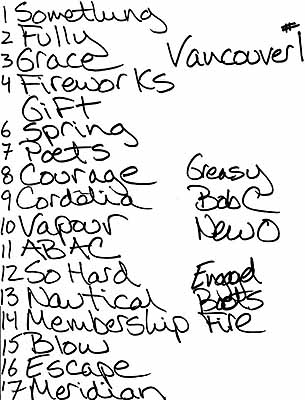 1 Something
2 Fully
3 Grace Vancouver #1
4 Fireworks
Gift
6 Spring
7 Poets
8 Courage Greasy
9 Cordelia BobC
10 Vapour New O
11 ABAC
12 So Hard
13 Nautical Boots
14 Membership Fire
15 Blow
16 Escape
17 Meridian